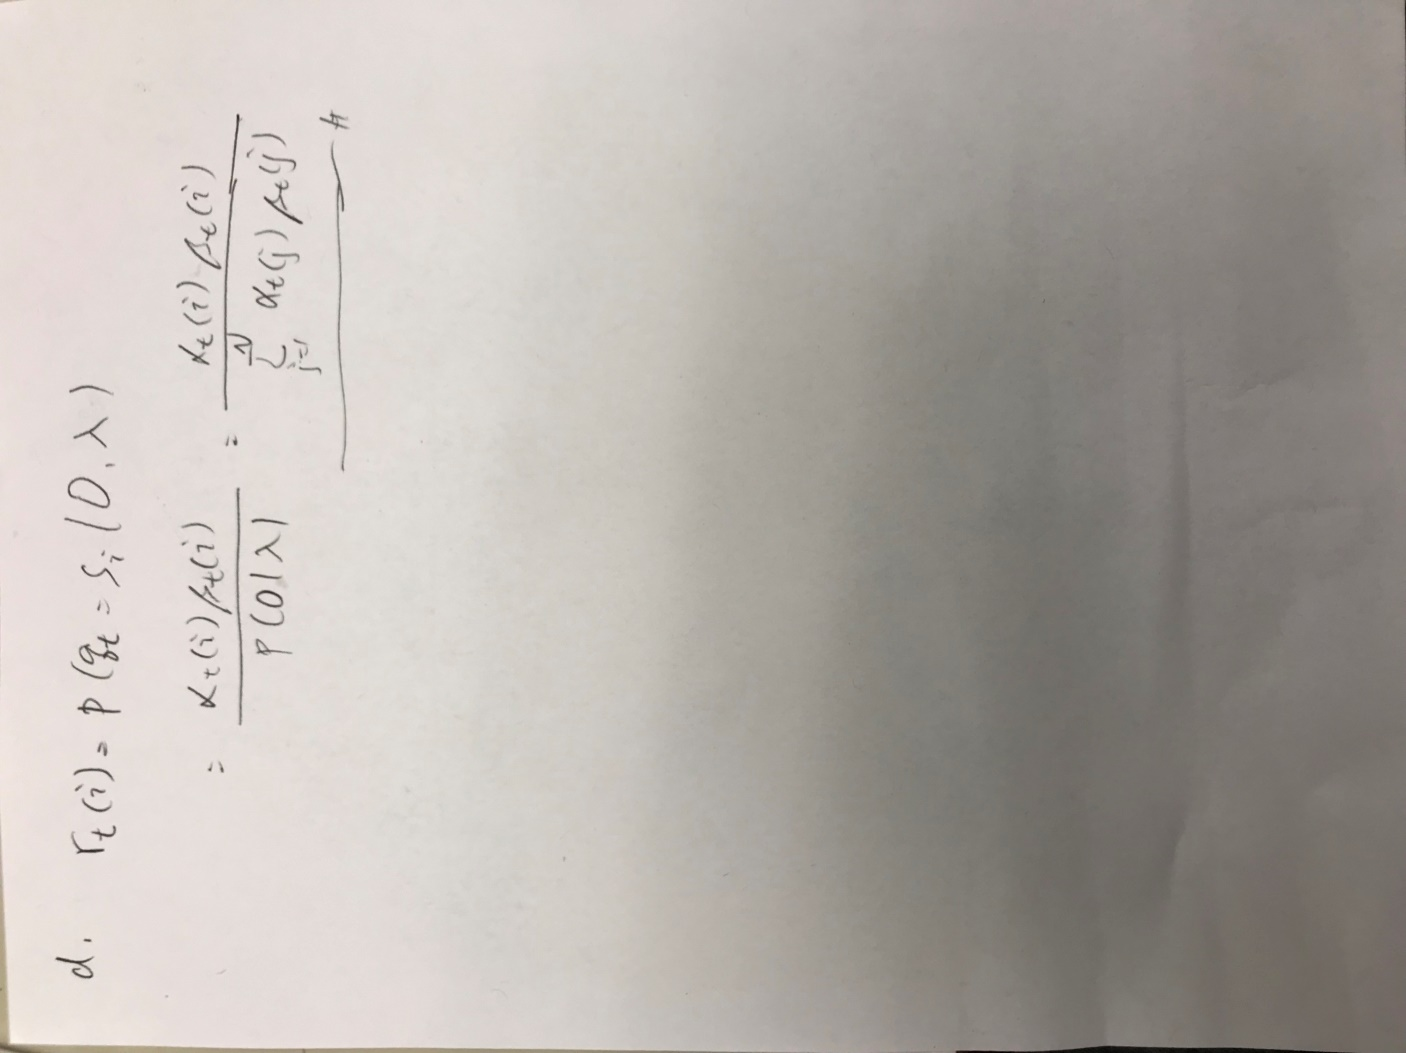 d. r_t(i) = P(q_t = S_i | O, λ)
= α_t(i) β_t(i) / P(O|λ) = α_t(i) β_t(i) / Σ_{j=1}^{N} α_t(j) β_t(j)